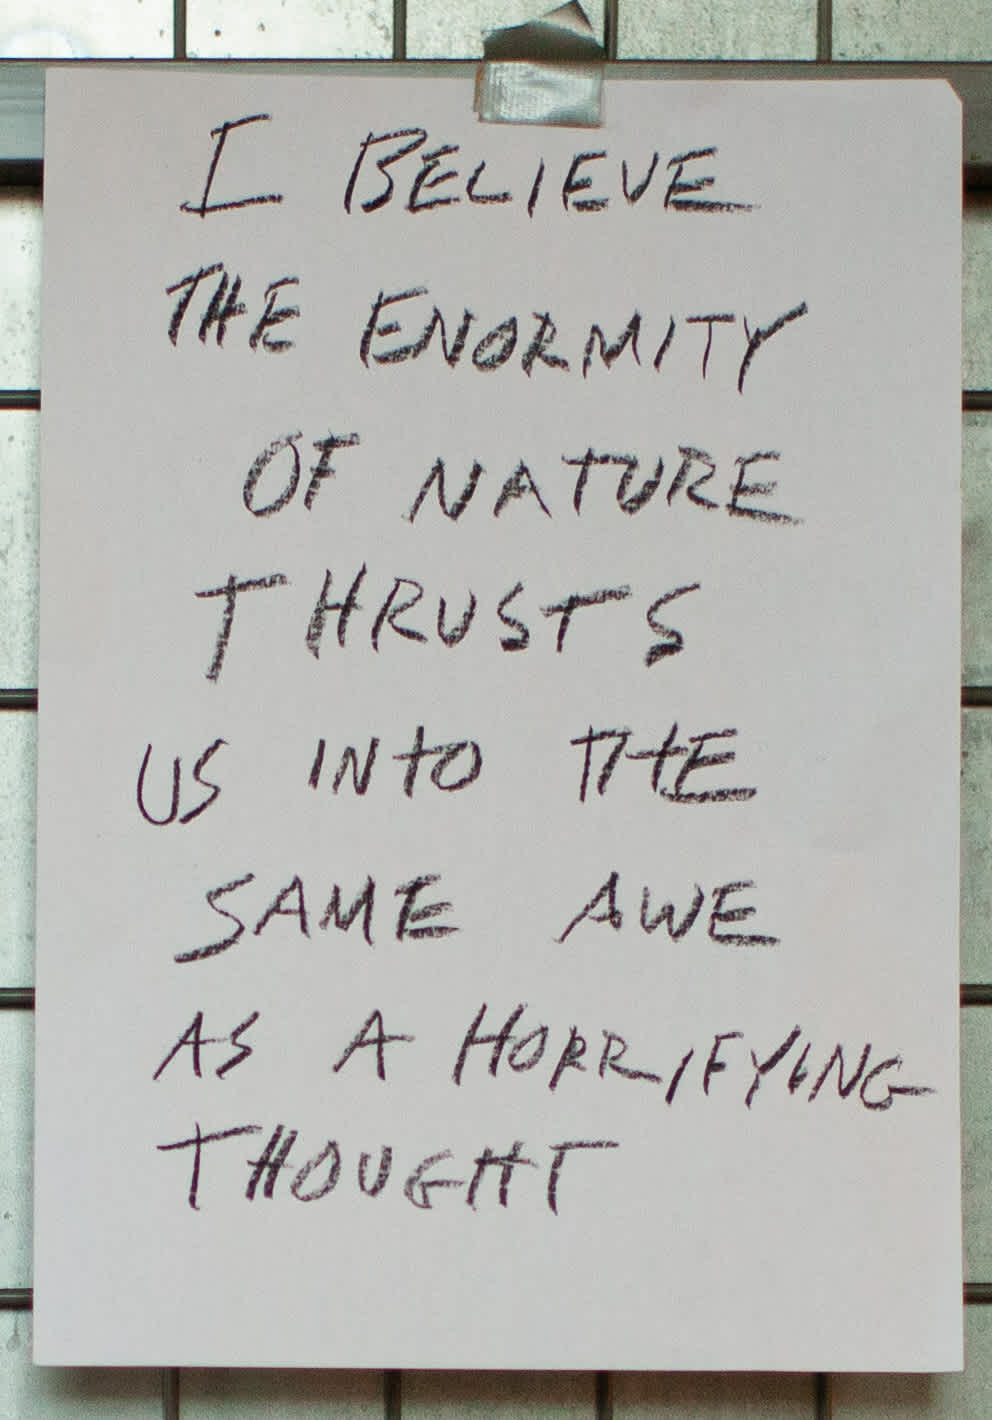 I BELIEVE
THE ENORMITY
OF NATURE
THRUSTS
US INTO THE
SAME AWE
AS A HORRIFYING
THOUGHT